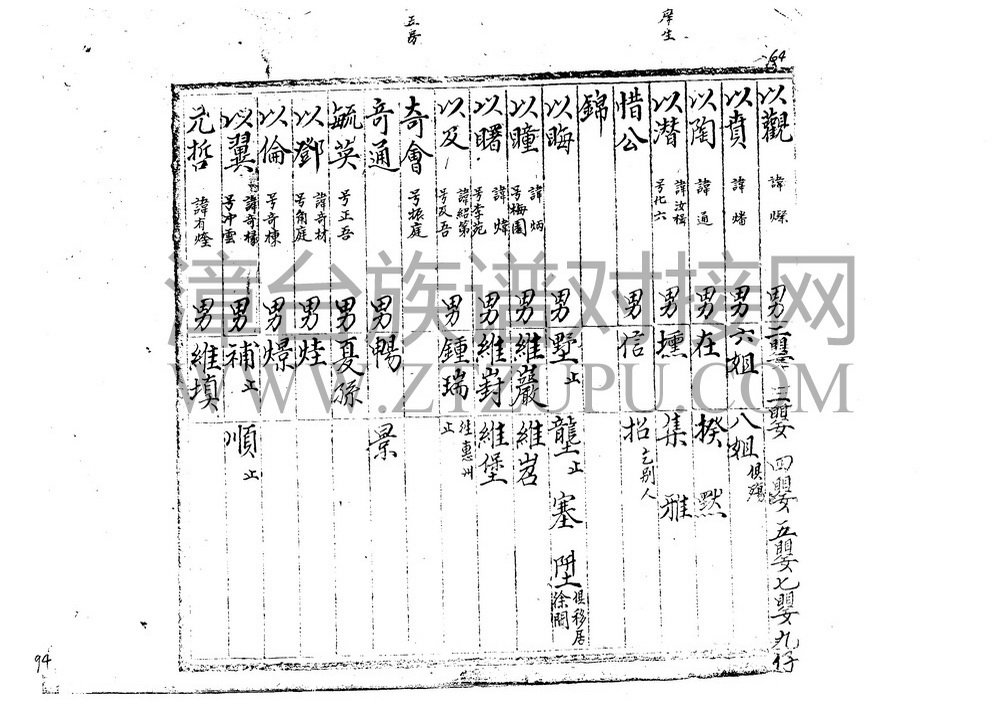 庠生
五房
94
以觀 諱爃 男 二嬰 三嬰 四嬰 五嬰 七嬰 九仔
以賁 諱燔 男 六姐 八姐 俱殤
以陶 諱通 男 在 揆 默
以潜 諱汝楫 号化六 男 壎 集 雅
惜公 男 信 招 乞别人
錦
以晦 男 墅止 壟止 塞 陞 俱移居涂間
以瞳 諱炳 号梅園 男 維巖 維岩
以曙 諱煒 号李苑 男 維崶 維堡
以及 諱紹第 号及吾 男 鍾瑞 往惠州 止
奇會 号振庭
奇通 男 暢 景
毓英 号正吾 男 夏孫
以鄧 諱奇材 号角庭 男 烓
以倫 号奇棟 男 燝
以翼 諱奇楊 号冲雲 男 補止 順止
元哲 諱有煃 男 維填
94
漳台族谱对接网
WWW.ZTZUPU.COM